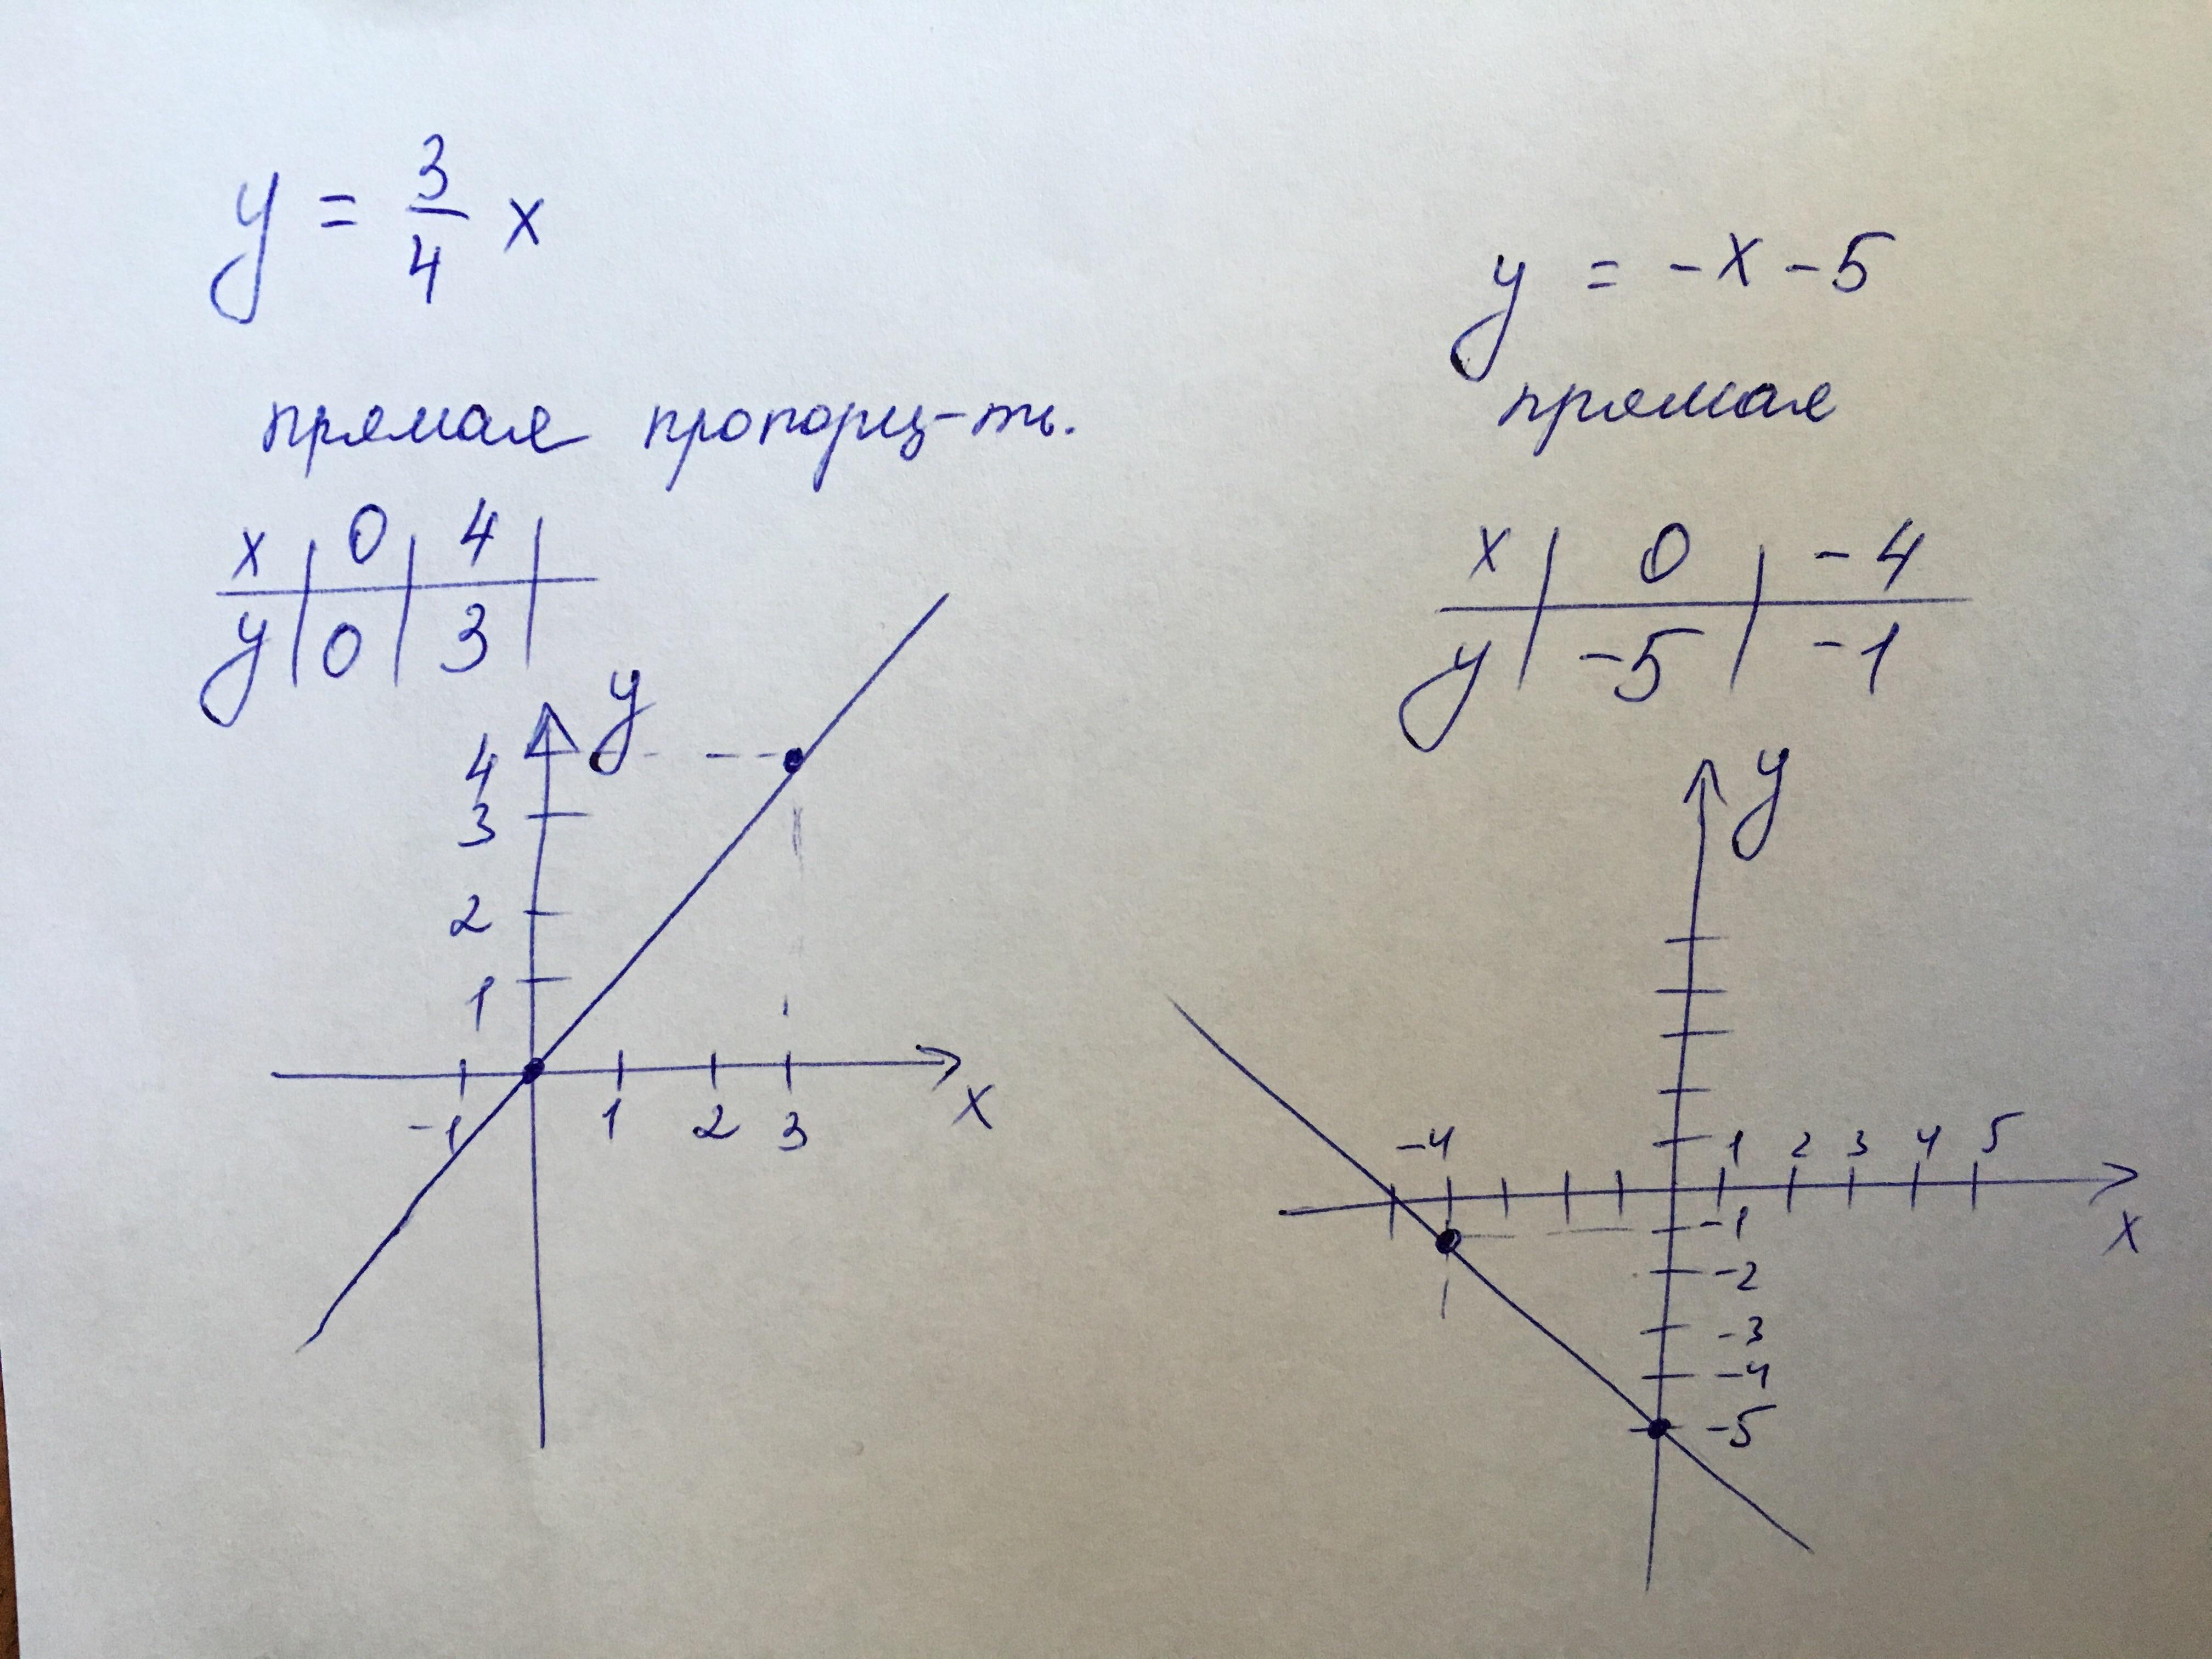 y = 3/4 x
прямая пропорц-ть.
x | 0 | 4 |
y | 0 | 3 |
y
4
3
2
1
-1 1 2 3
x
y = -x - 5
прямая
x | 0 | -4
y | -5 | -1
y
-4 1 2 3 4 5
x
-1
-2
-3
-4
-5